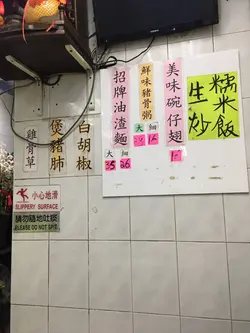 生炒糯米飯
美味碗仔翅
鮮味豬骨粥
大 細
招牌油渣麵
大 細
35 26
白胡椒
煲豬肺
雞骨草
小心地滑
SLIPPERY SURFACE
請勿隨地吐痰
PLEASE DO NOT SPIT